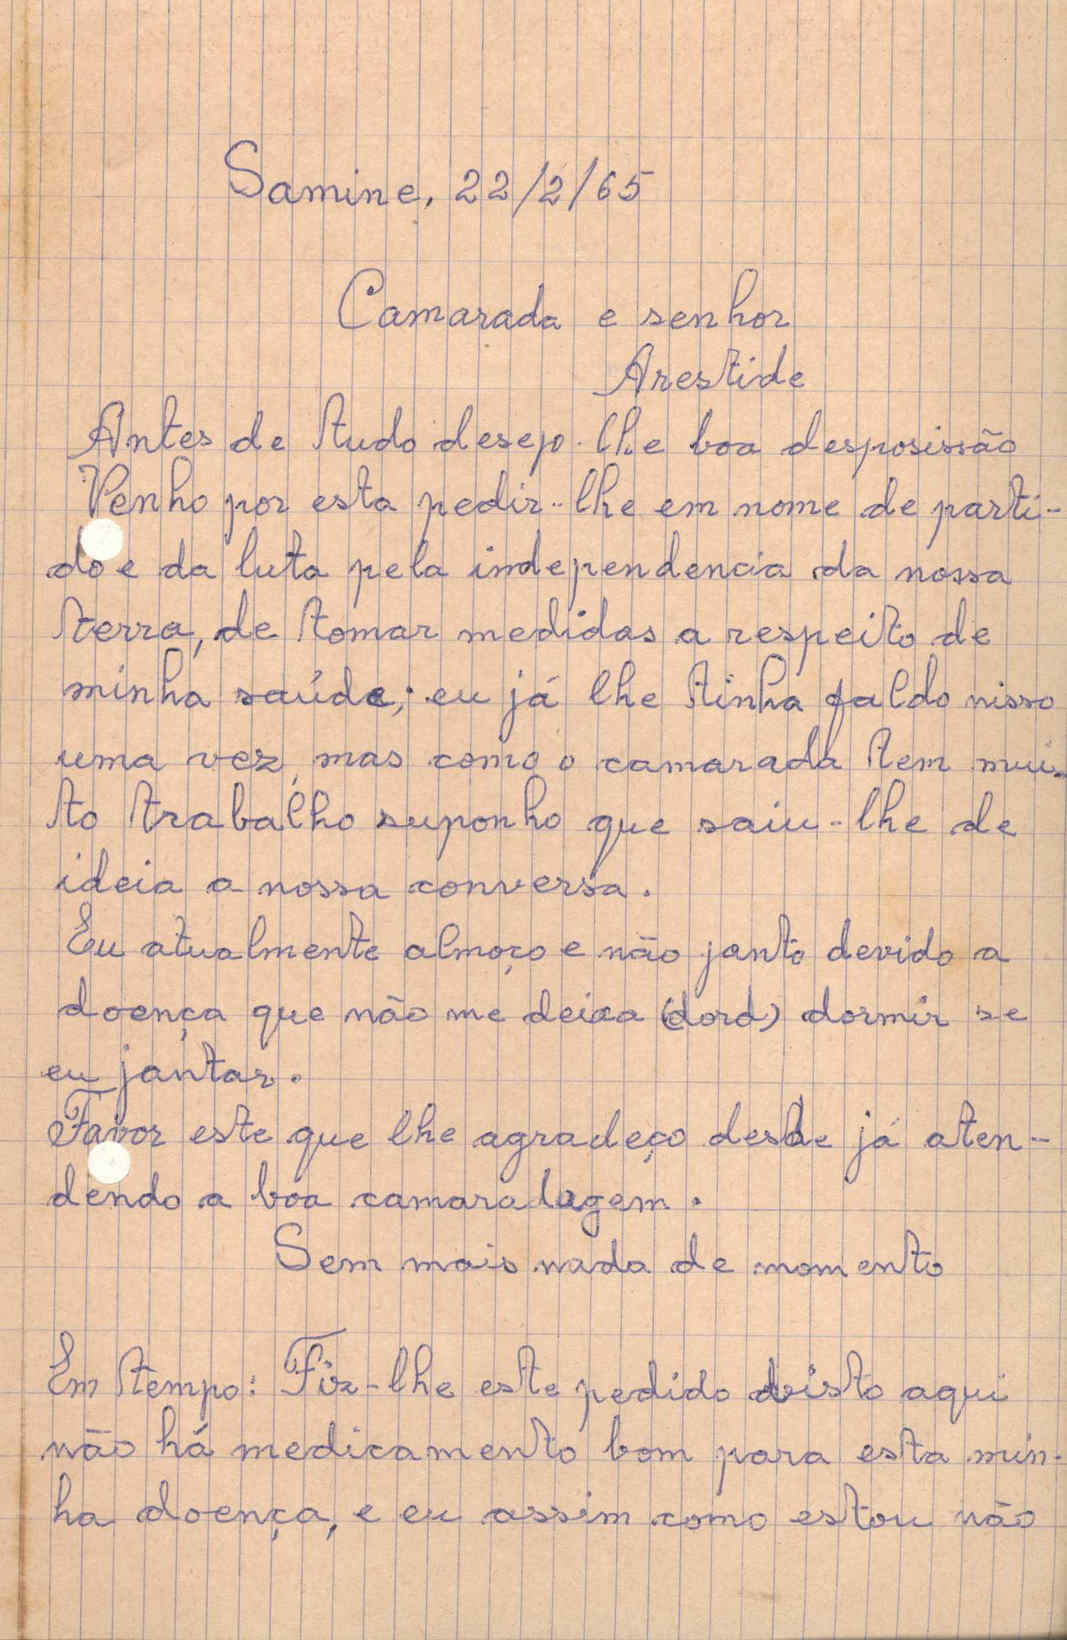 Samine, 22/2/65
Camarada e senhor
Arestide
Antes de tudo desejo-lhe boa desposissão
Venho por esta pedir-lhe em nome de parti-
do e da luta pela independencia da nossa
terra, de tomar medidas a respeito de
minha saúde; eu já lhe tinha faldo nisso
uma vez, mas como o camarada tem mui-
to trabalho suponho que saiu-lhe de
ideia a nossa conversa.
Eu atualmente almoço e não janto devido a
doença que não me deixa (dord) dormir se
eu jantar.
Favor este que lhe agradeço desde já aten-
dendo a boa camaradagem.
Sem mais nada de momento
Em tempo: Fiz-lhe este pedido visto aqui
não há medicamento bom para esta min-
ha doença, e eu assim como estou não